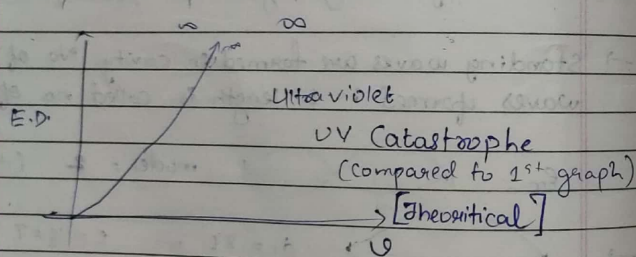 ∞ ∞
Ultraviolet
E.D.
UV Catastrophe
(Compared to 1st graph)
[Theoritical]
υ